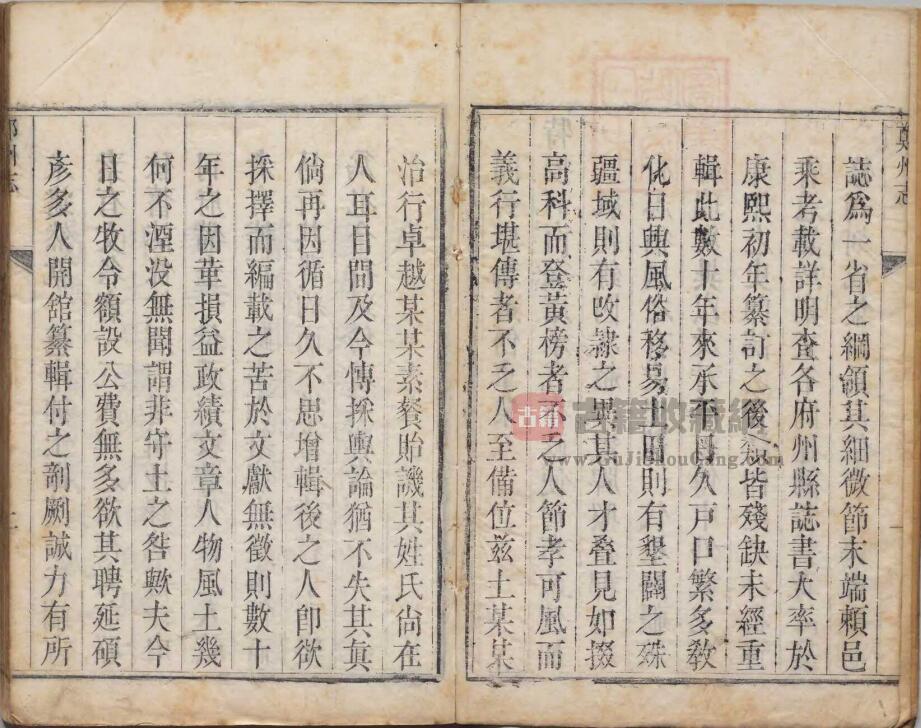 鄭州志
誌爲一省之綱領其細微節末端頼邑
乘考載詳明查各府州縣誌書大率於
康熙初年纂訂之後類皆殘缺未經重
輯此數十年來承平日久戸口繁多敎
化日興風俗移易土田則有墾闢之殊
疆域則有改隷之異其人才疊見如掇
高科而登黃榜者不乏人節孝可風而
義行堪傳者不乏人至備位兹土某某
治行卓越某某素餐貽譏其姓氏尚在
人耳目間及今愽採輿論猶不失其眞
倘再因循日久不思增輯後之人卽欲
採擇而編載之苦於文獻無徵則數十
年之因革損益政績文章人物風土幾
何不湮没無聞謂非守土之咎歟夫今
日之牧令額設公費無多欲其聘延碩
彥多人開館纂輯付之剞劂誠力有所
州志
古籍
古籍收藏網
www.GuJiShouCang.com